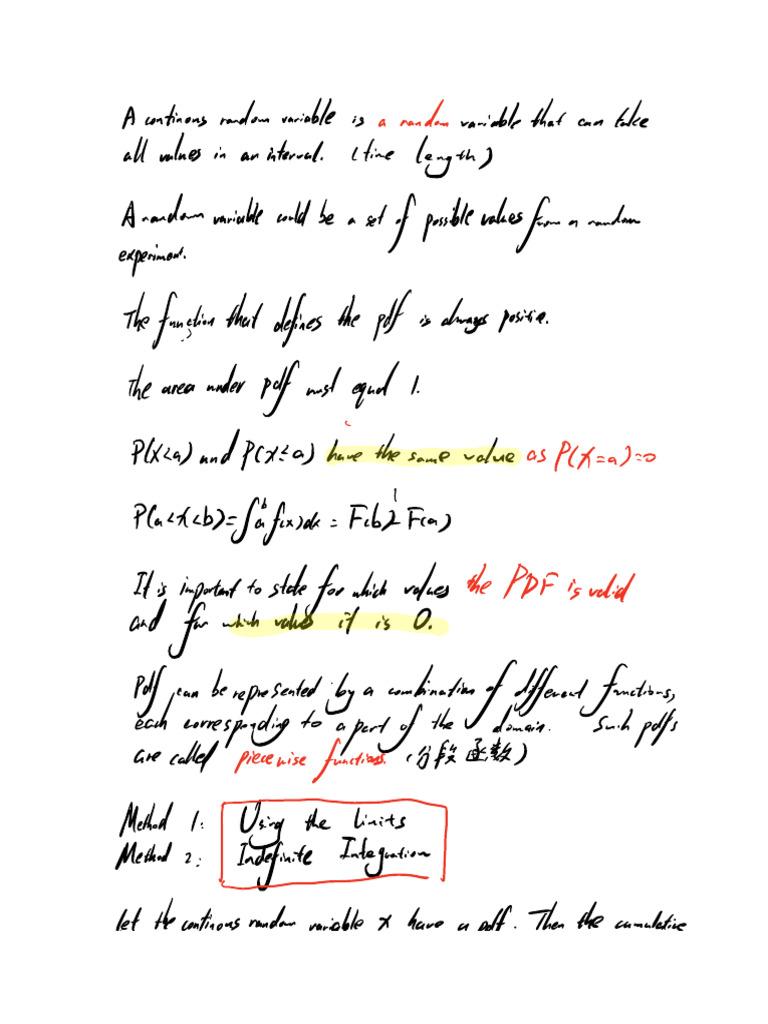 A continous random variable is a random variable that can take
all values in an interval. (time length)
A random variable could be a set of possible values from a random
experiment.
The function that defines the pdf is always positive.
The area under pdf must equal 1.
P(X<a) and P(X≤a) have the same value as P(X=a)=0
P(a<X<b)=∫ᵇₐ f(x)dx = F(b)-F(a)
It is important to state for which values the PDF is valid
and for which values it is 0.
Pdf can be represented by a combination of different functions,
each corresponding to a part of the domain. Such pdfs
are called piecewise functions. (分段函数)
Method 1: Using the limits
Method 2: Indefinite Integration
let the continous random variable X have a pdf. Then the cumulative